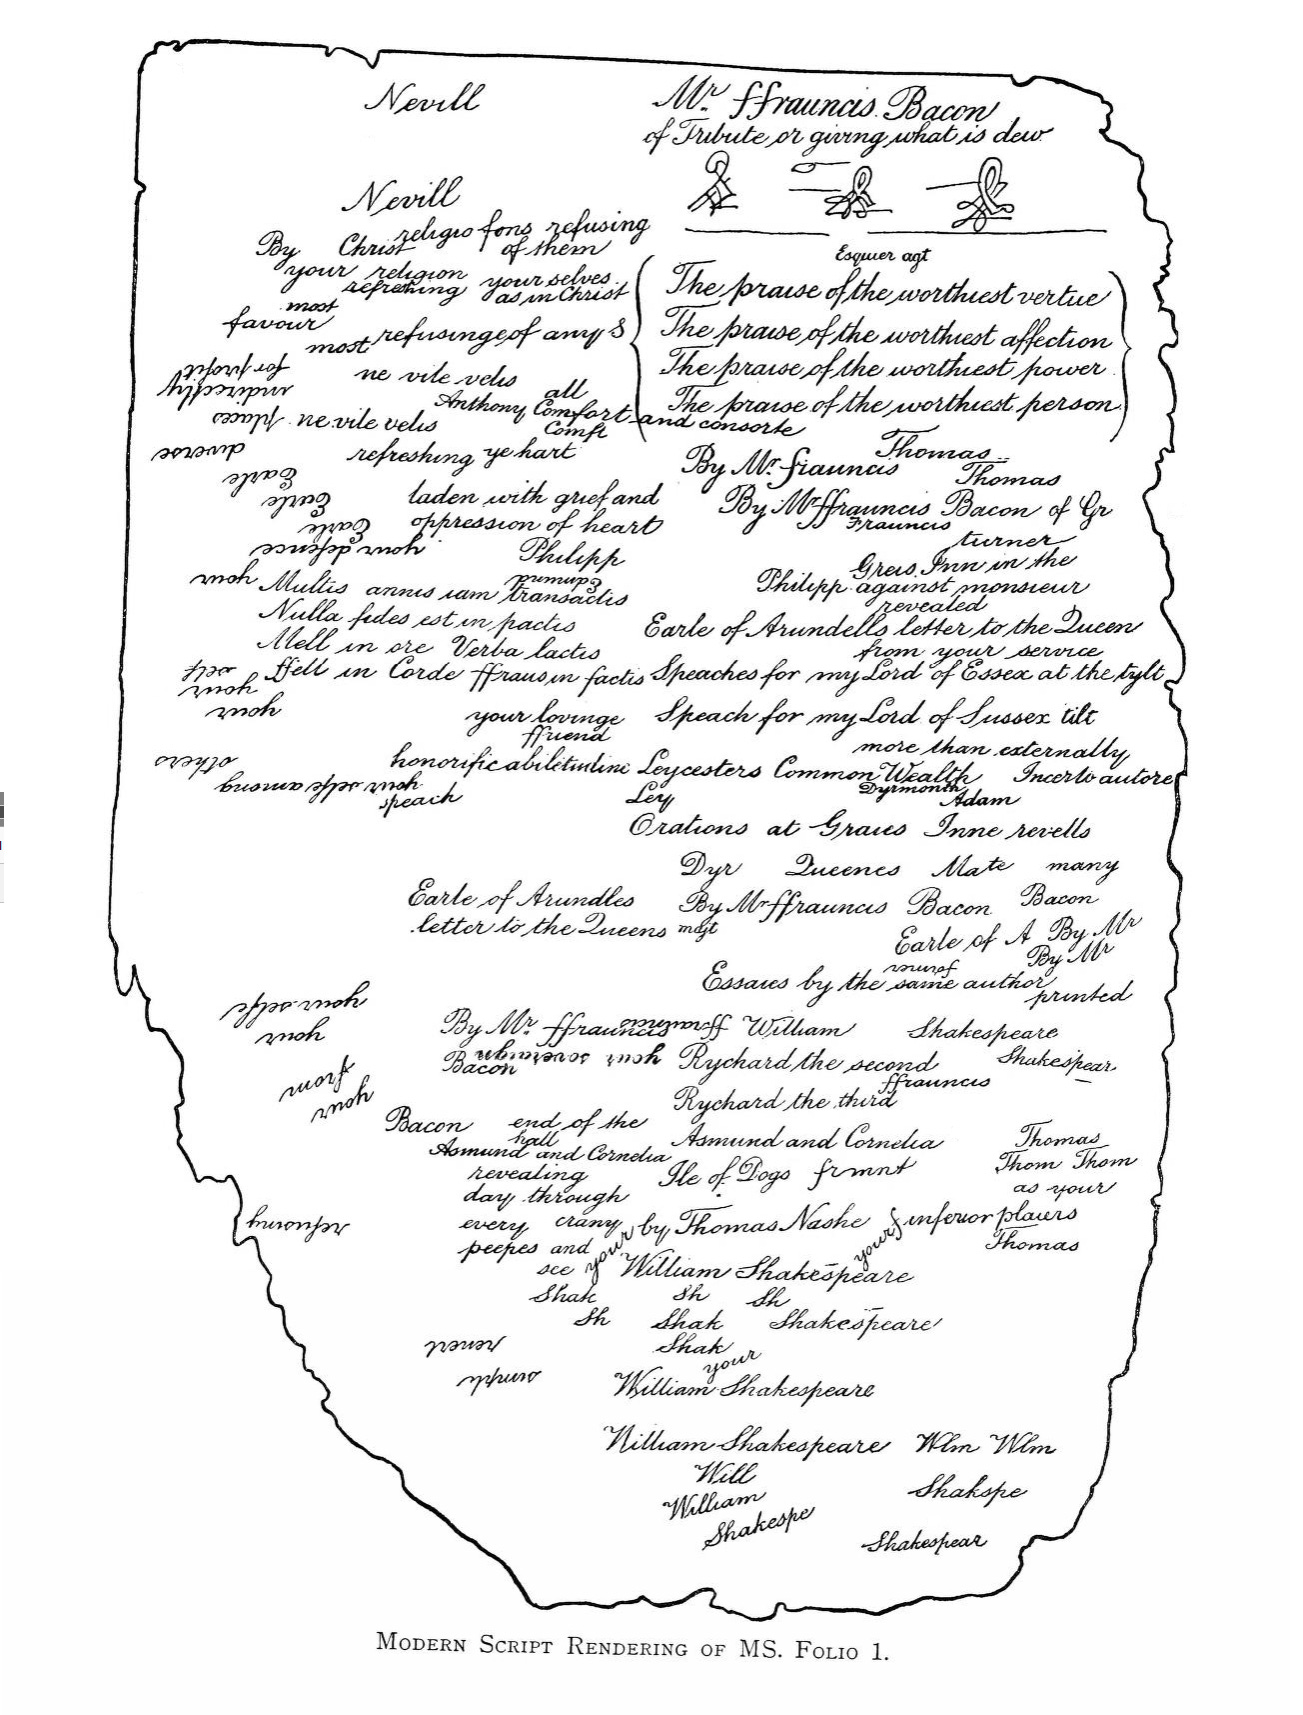 Nevill
Mr ffrauncis. Bacon
of Tribute or giving what is dew
Nevill
religio fons refusing
By Christ of them
Esquier agt
your religion your selves
refreshing as in Christ
The praise of the worthiest vertue
most
favour
refusinge of any S
The praise of the worthiest affection
most
for profit
The praise of the worthiest power
ne vile velis
indirectly
all
Anthony Comfort and consorte
The praise of the worthiest person
places
ne vile velis
Comft
diverse
refreshing ye hart
Thomas
By Mr. ffrauncis
Thomas
Earle
Earle
laden with grief and
By Mr ffrauncis Bacon of Gr
Frauncis
Earle
oppression of heart
turner
your defence
Philipp
Greis Inn in the
your
Edmund
Multis annis iam transactis
Philipp against monsieur
revealed
Nulla fides est in pactis
Earle of Arundells letter to the Queen
Mell in ore Verba lactis
from your service
self
ffell in Corde ffraus in factis
Speaches for my Lord of Essex at the tylt
your
your
your lovinge
Speach for my Lord of Sussex tilt
ffriend
more than externally
others
honorificabiletudini
Leycesters Common Wealth Incerto autore
your selfe among
Dyrmonth
speach
Ley
Adam
Orations at Graies Inne revells
Dyr Queenes Mate many
Earle of Arundles
By Mr ffrauncis Bacon Bacon
letter to the Queens magt
Earle of A By Mr
By Mr
former
Essaies by the same author
printed
your selfe
By Mr. ffrauncis
ffrauncis
William Shakespeare
your
your soveraign
Bacon
Rychard the second Shakespear
ffrauncis
from
your
Rychard the third
Bacon end of the
hall
Asmund and Cornelia Thomas
Asmund and Cornelia
revealing
Ile of Dogs frmnt Thom Thom
day through
as your
refusing
every crany
your
by Thomas Nashe
your
inferior plaiers
peepes and
Thomas
see
William Shakespeare
Shak Sh Sh
Sh Shak Shakespeare
Shak
your
William Shakespeare
William Shakespeare Wlm Wlm
Will
William Shakspe
Shakespe
Shakespear
MODERN SCRIPT RENDERING OF MS. FOLIO 1.